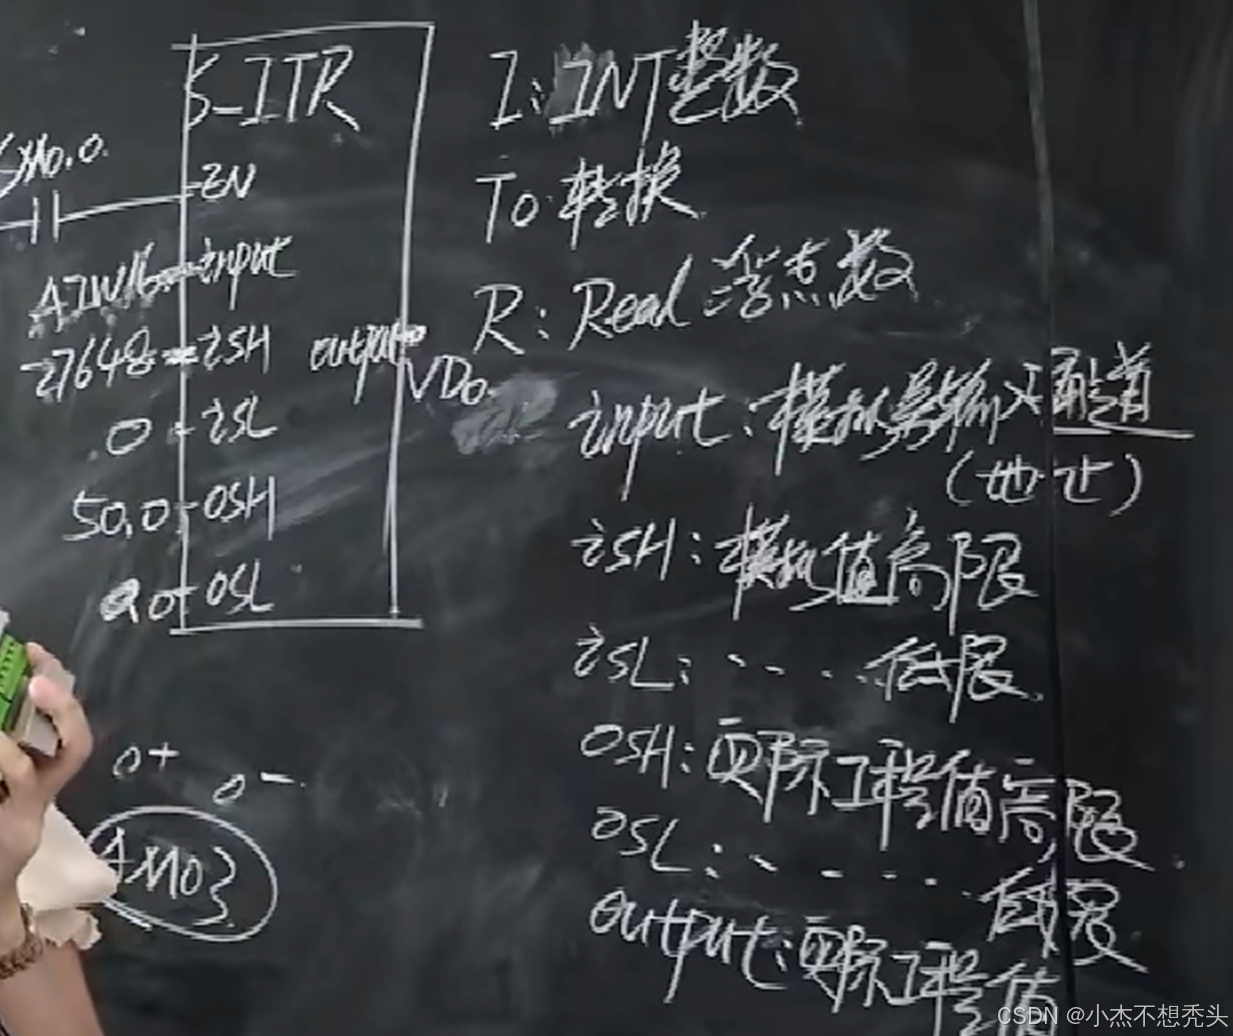 S_ITR
SM0.0
EN
AIW16
input
27648
ISH
output
VD0
0
ISL
50.0
OSH
0.0
OSL
0+
0-
AM03
I: INT 整数
To 转换
R: Real 浮点数
input: 模拟量输入通道
(地址)
ISH: 模拟值高限
ISL: ....低限
OSH: 实际工程值高限
OSL: .....低限
output: 实际工程值
CSDN @小杰不想秃头